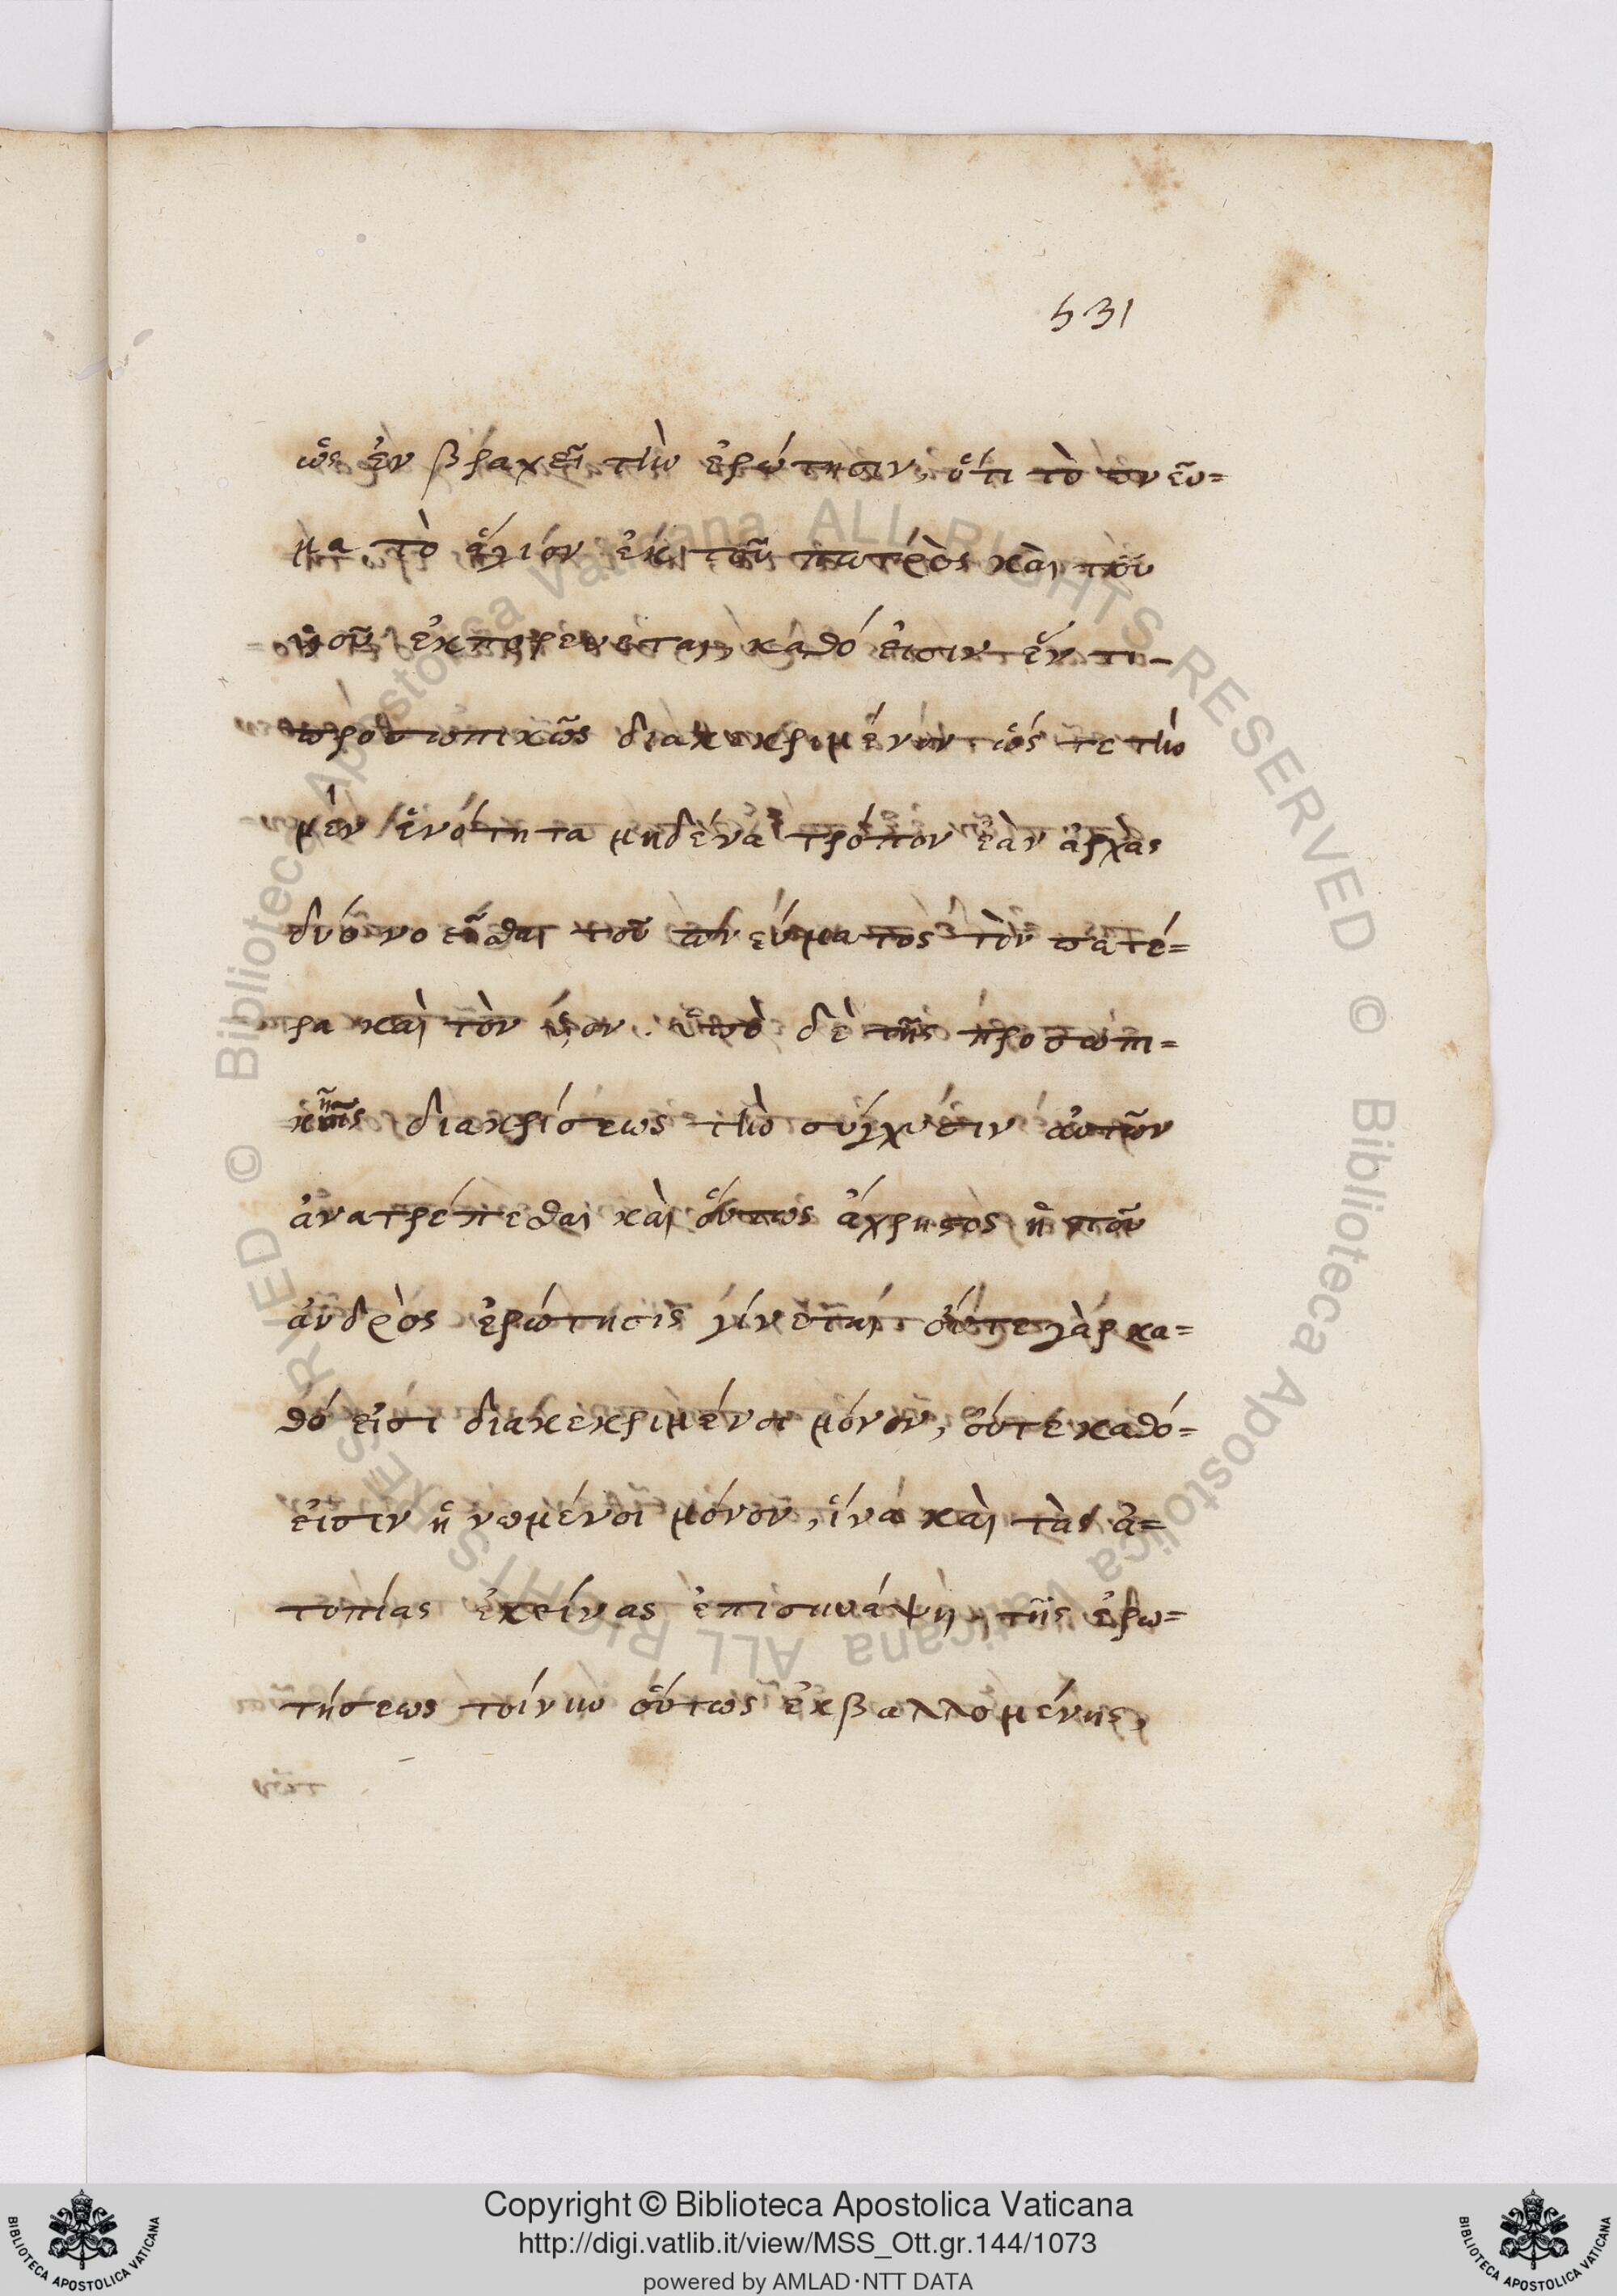 531
ὡς ἐν βραχεῖ τὴν ἐρώτησιν, ὅτι τὸ πνεῦ=
μα τὸ ἅγιον ἐκ τοῦ πατρὸς καὶ τοῦ
υἱοῦ ἐκπορεύεται, καθό εἰσιν ἕν τι-
προσωπικῶς διακεκριμένον ὥς τε τὴν
μὲν ἑνότητα μηδένα τρόπον ἐὰν ἀρχὰς
δύο νοεῖσθαι τοῦ πνεύματος τὸν πατέ=
ρα καὶ τὸν υἱόν. ὑπὸ δὲ τῆς προσωπι=
κῆς διακρίσεως τὴν σύγχυσιν αὐτῶν
ἀνατρέπεσθαι καὶ οὕτως ἄχρηστος ἡ τοῦ
ἀνδρὸς ἐρώτησις γίνεται οὔτε γὰρ κα=
θό εἰσι διακεκριμένοι μόνον, οὔτε καθό=
εἰσιν ἡνωμένοι μόνον, ἵνα καὶ τὰς ἀ=
τοπίας ἐκείνας ἐπισυνάψη, τῆς ἐρω=
τήσεως τοίνυν οὕτως ἐκβαλλομένης,
Copyright © Biblioteca Apostolica Vaticana
http://digi.vatlib.it/view/MSS_Ott.gr.144/1073
powered by AMLAD·NTT DATA
BIBLIOTECA APOSTOLICA VATICANA
BIBLIOTECA APOSTOLICA VATICANA
© Biblioteca Apostolica Vaticana ALL RIGHTS RESERVED © Biblioteca Apostolica Vaticana ALL RIGHTS RESERVED